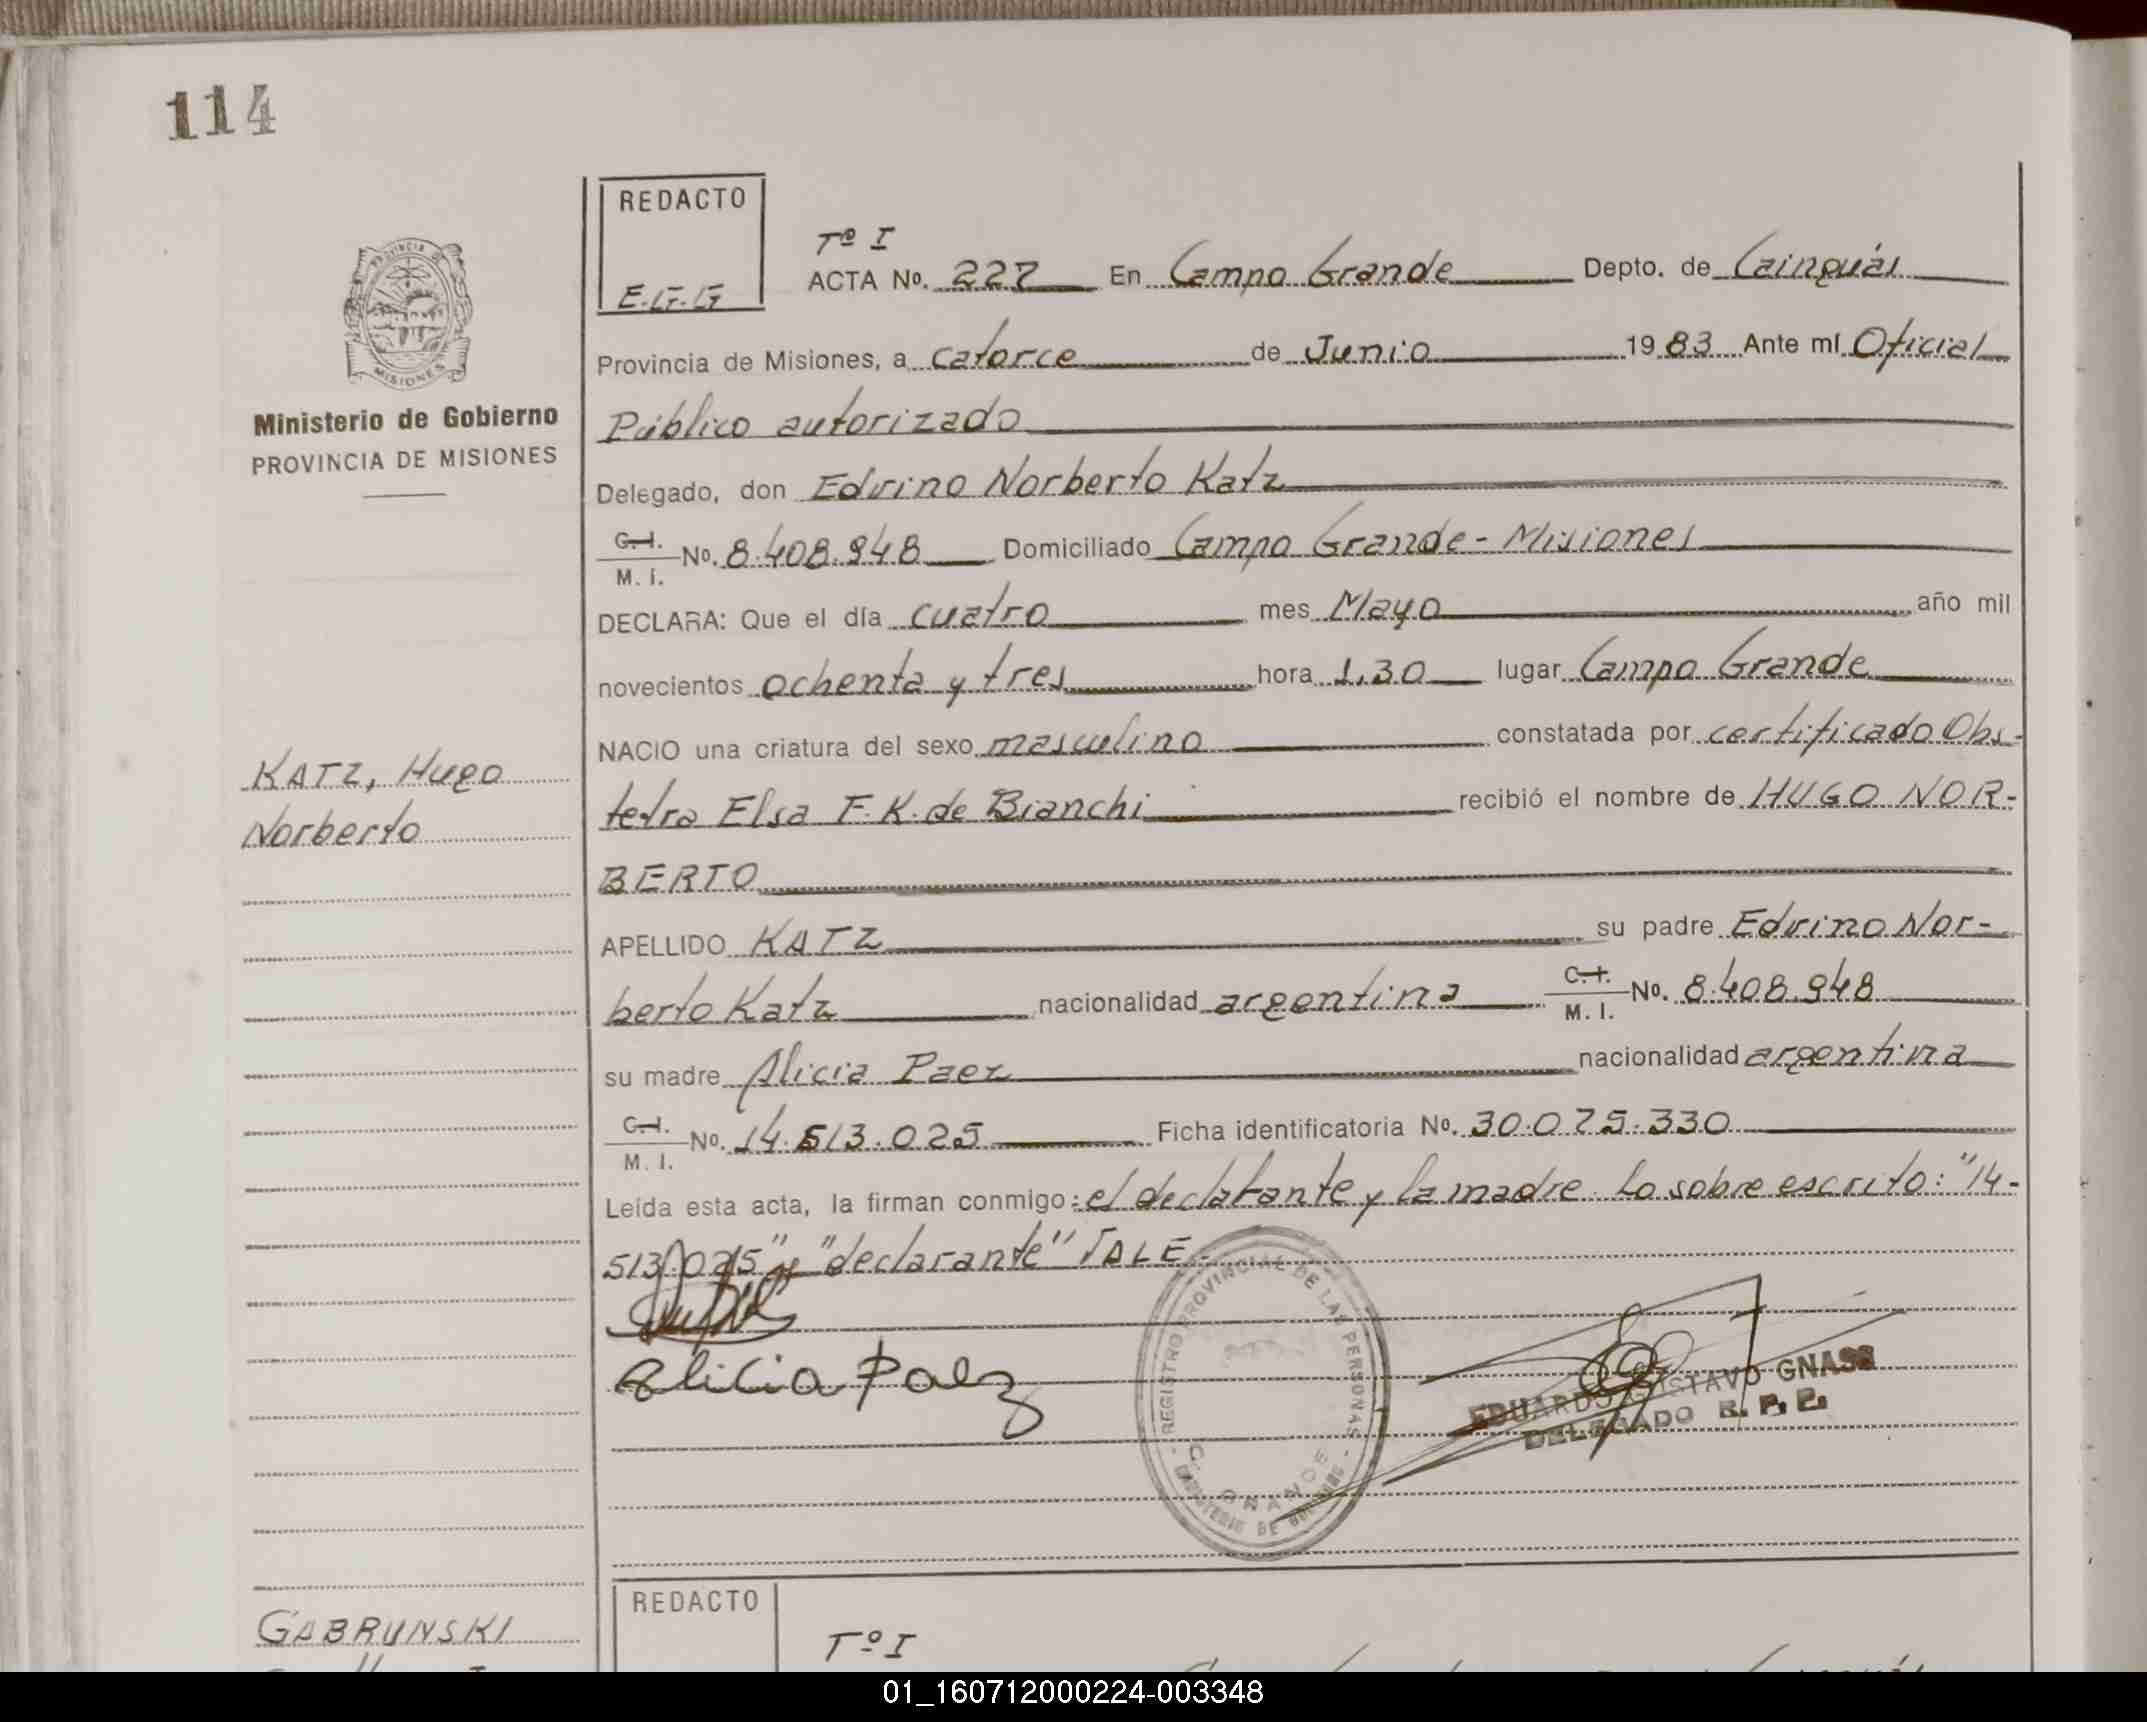 114
REDACTO
E.G.G
PROVINCIA DE
MISIONES
Ministerio de Gobierno
PROVINCIA DE MISIONES
Tº I
ACTA Nº. 227 En Campo Grande Depto. de Cainguás
Provincia de Misiones, a catorce de Junio 1983 Ante mí Oficial
Público autorizado
Delegado, don Edvino Norberto Katz
C.I. M. I. Nº. 8.408.948 Domiciliado Campo Grande - Misiones
DECLARA: Que el día cuatro mes Mayo año mil
novecientos ochenta y tres hora 1,30 lugar Campo Grande
NACIO una criatura del sexo masculino constatada por certificado Obs-
KATZ, Hugo
Norberto
tetra Elsa F. K. de Bianchi recibió el nombre de HUGO NOR-
BERTO
APELLIDO KATZ su padre Edvino Nor-
berto Katz nacionalidad argentina C.I. M. I. Nº. 8.408.948
su madre Alicia Paez nacionalidad argentina
C.I. M. I. Nº. 14.513.025 Ficha identificatoria Nº. 30.075.330
Leída esta acta, la firman conmigo: el declarante y la madre. Lo sobre escrito: "14-
513.025" y "declarante" VALE.-
Alicia Paez
REGISTRO PROVINCIAL DE LAS PERSONAS
C. GRANDE
MINISTERIO DE GOBIERNO
EDUARDO GUSTAVO GNASS
DELEGADO R. P. P.
REDACTO
GABRUNSKI
Tº I
01_160712000224-003348